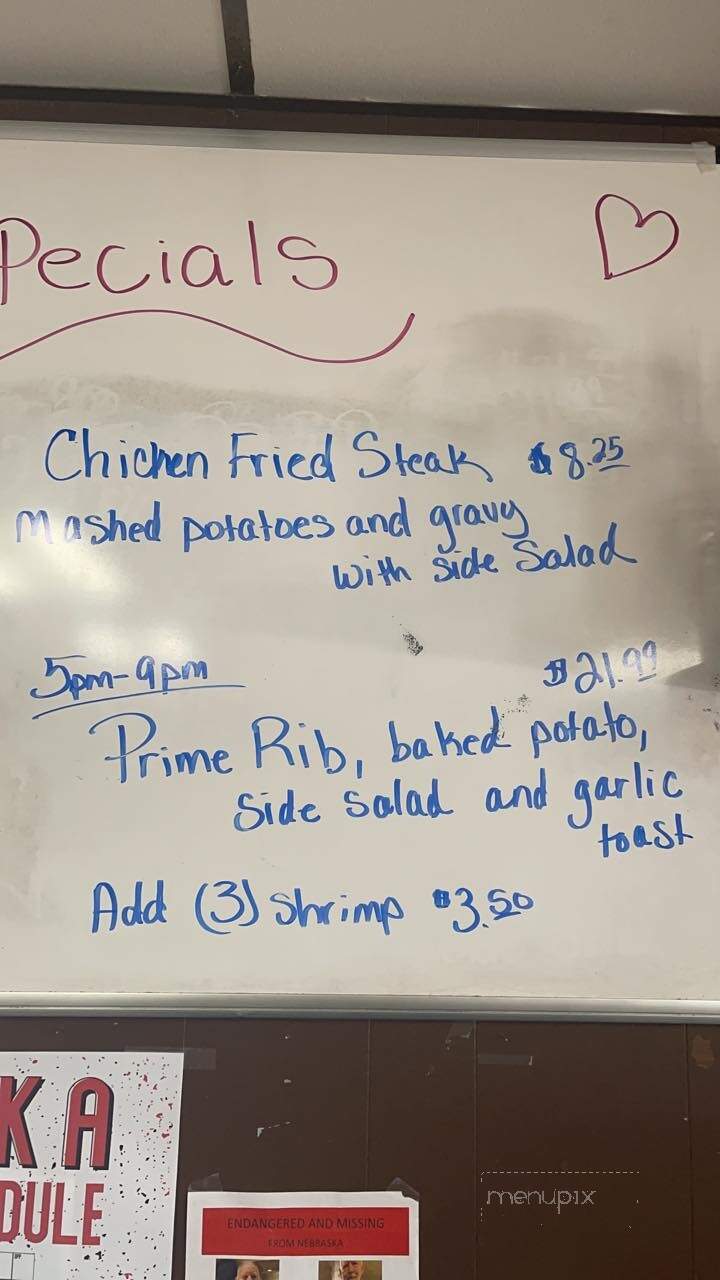 Pecials
Chicken Fried Steak $8.25
Mashed potatoes and gravy
with side Salad
5pm-9pm
$21.99
Prime Rib, baked potato,
side salad and garlic
toast
Add (3) shrimp $3.50
KA
DULE
ENDANGERED AND MISSING
FROM NEBRASKA
menupix